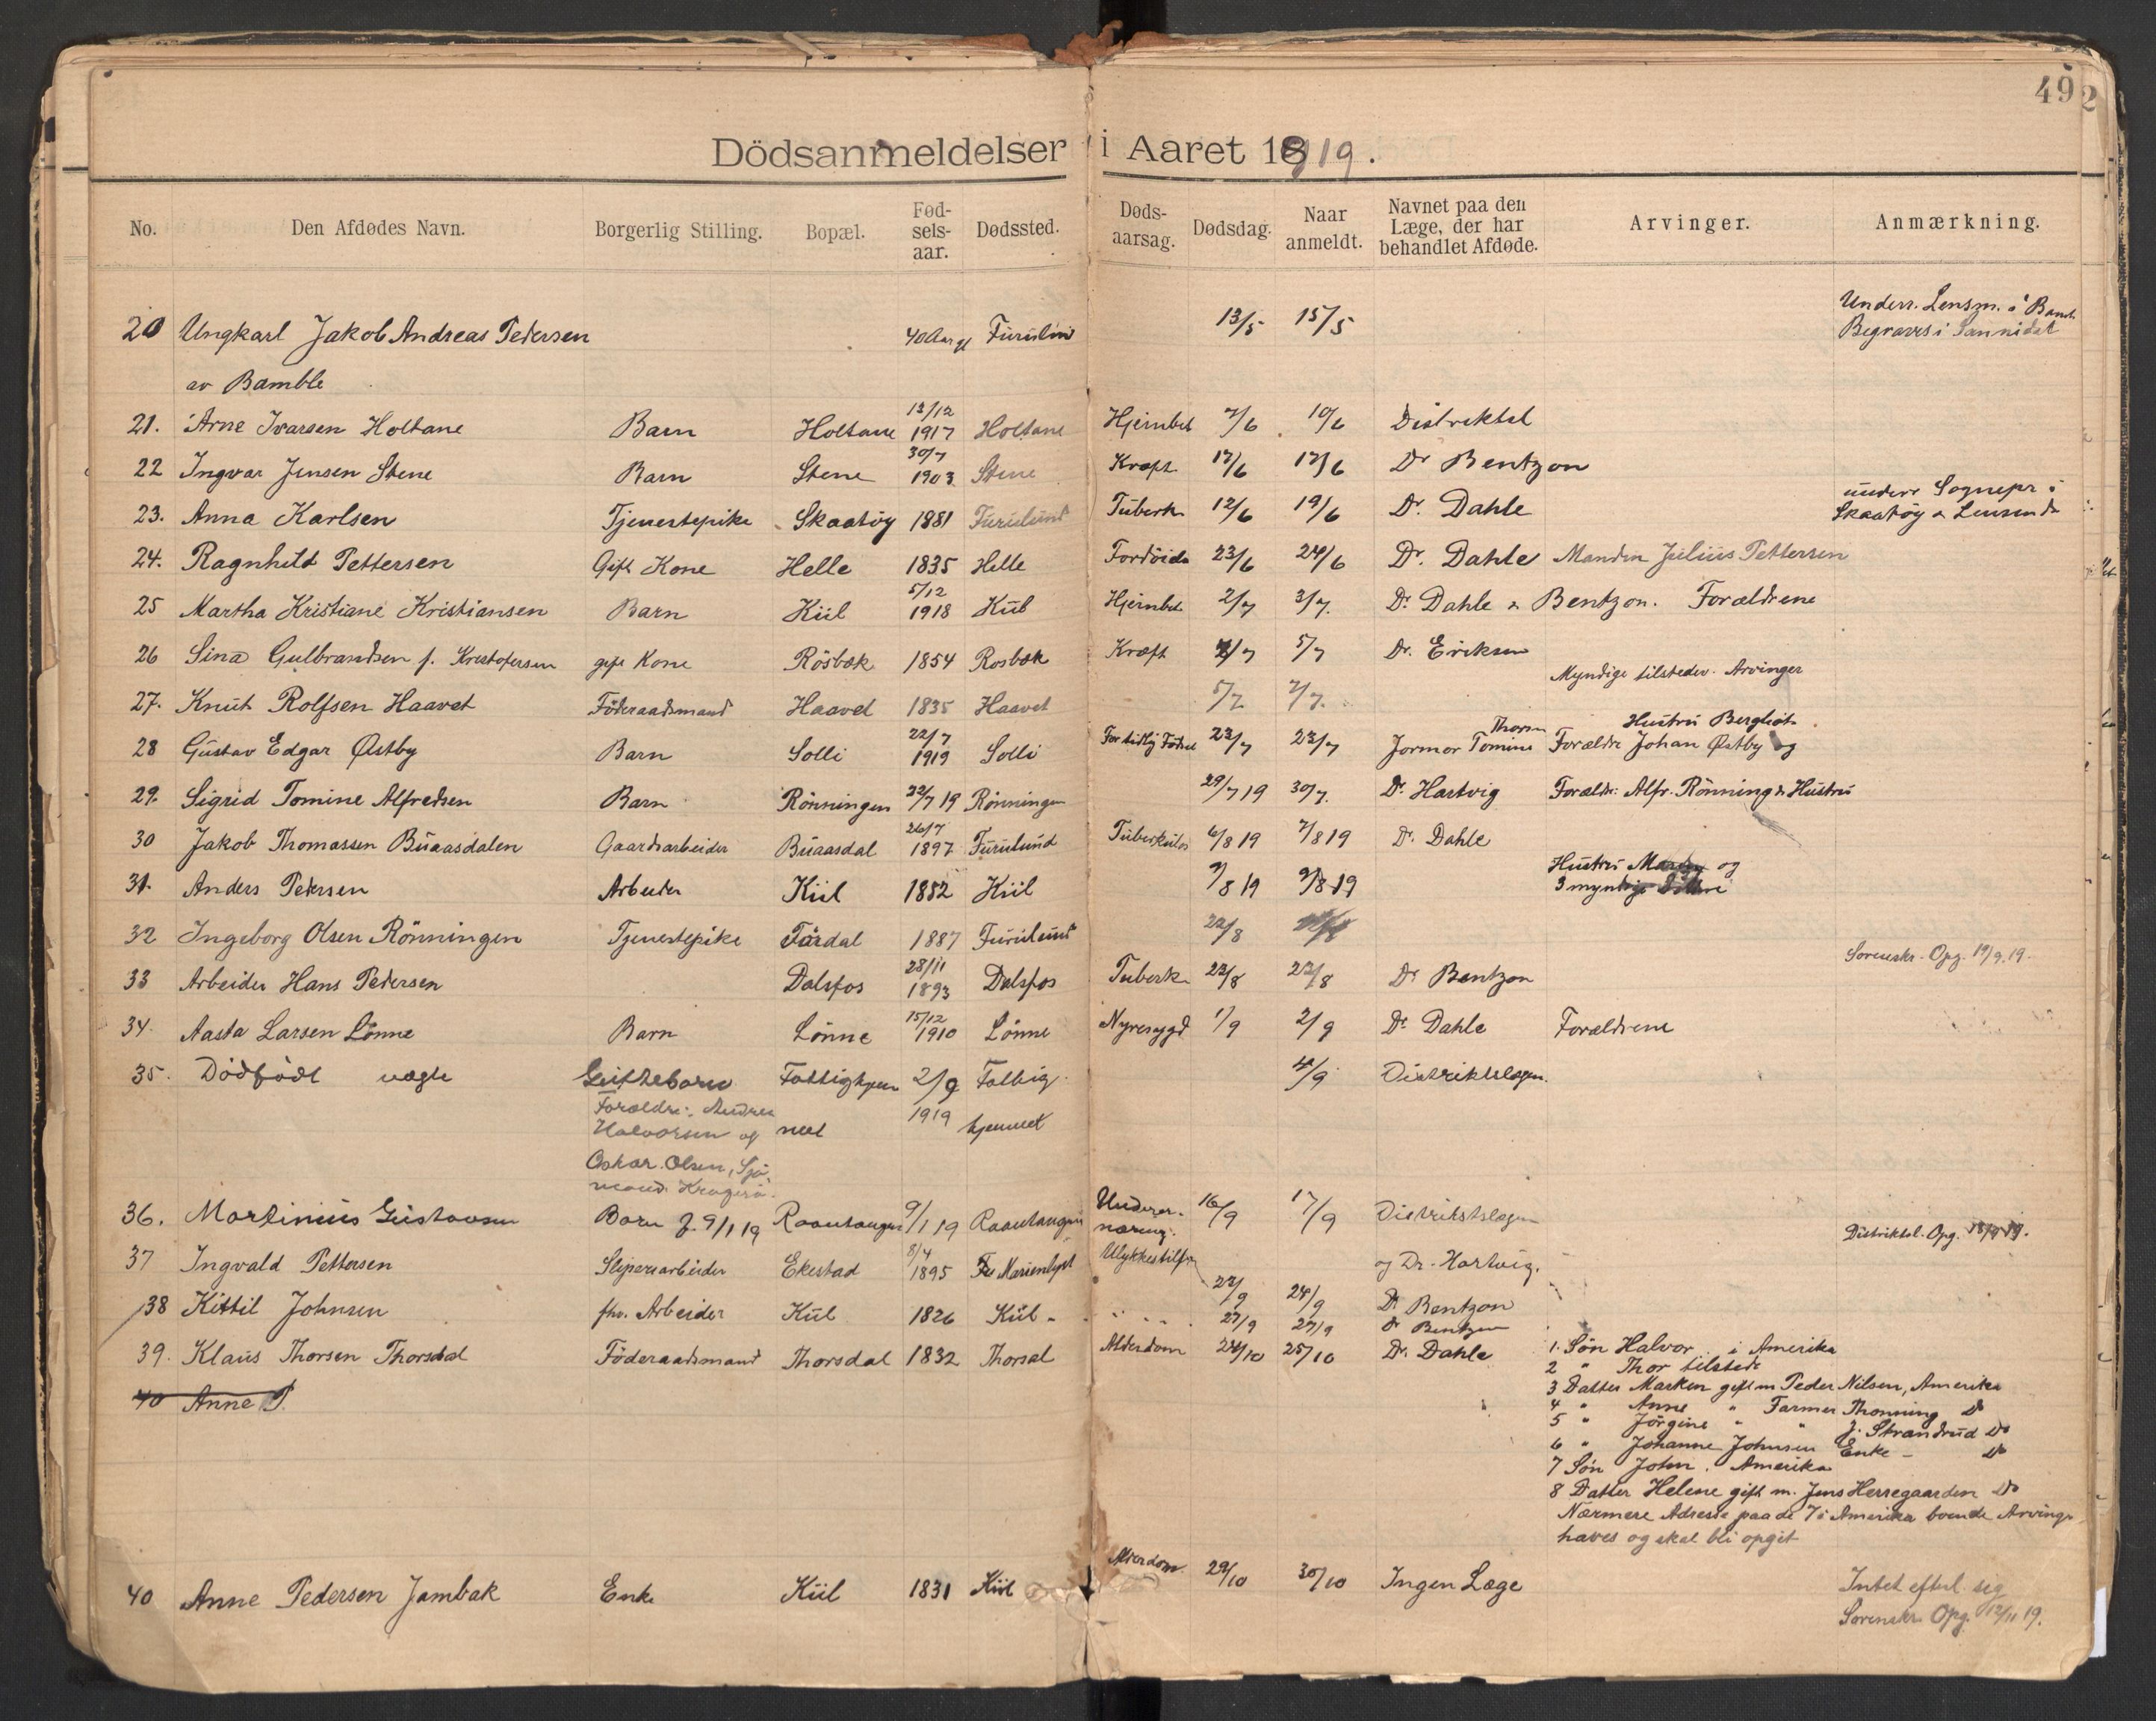 49
2
Dödsanmeldelser i Aaret 1919.
No. Den Afdødes Navn. Borgerlig Stilling. Bopæl. Fød-sels-aar. Dødssted. Døds-aarsag. Dødsdag. Naar anmeldt. Navnet paa den Læge, der har behandlet Afdøde. Arvinger. Anmærkning.
Underr. Lensm. i Bamb.
20 Ungkarl Jakob Andreas Pedersen 40 Aar gl Furulund 13/5 15/5 Begraves i Sannidal
av Bamble
13/12
21. Arne Ivarsen Holtane Barn Holtane 1917 Holtane Hjernbet 7/6 10/6 Distriktsl
30/7
22 Ingvar Jensen Stene Barn Stene 1903 Stene Kræft 17/6 17/6 Dr Bentzon
underr Sognepr i
23. Anna Karlsen Tjenestepike Skaatøy 1881 Furulund Tuberk 12/6 19/6 Dr. Dahle Skaatøy & Lensm
24. Ragnhild Pettersen Gift Kone Helle 1835 Helle Fordöide 23/6 24/6 Dr. Dahle Manden Julius Pettersen
5/12
25 Martha Kristiane Kristiansen Barn Kiil 1918 Kiil Hjernbet 2/7 3/7. Dr. Dahle & Bentzon. Forældrene
26 Sina Gulbrandsen f. Kristofersen gift Kone Rösbæk 1854 Rosbæk Kræft 2/7 5/7 Dr. Eriksen
Myndige tilstedev. Arvinger
27. Knut Rolfsen Haavet Föderaadsmand Haavet 1835 Haavet 5/7 7/7.
22/7 Thorsn Hustru Bergliot
28 Gustav Edgar Østby Barn Solli 1919 Solli For tidlig Födsel 23/7 23/7 Jormor Tomine Forældre Johan Østby og
29. Sigrid Tomine Alfredsen Barn Rönningen 22/7 19 Rönningen 29/7 19 30/7. Dr. Hartvig Forældr: Alfr. Rönning & Hustru
26/7
30 Jakob Thomassen Buaasdalen Gaardsarbeider Buaasdal 1897 Furulund Tuberkulos 6/8 19 7/8 19 Dr. Dahle
Hustru og
31. Anders Petersen Arbeider Kiil 1852 Kiil 7/8 19 9/8 19 3 myndige
32 Ingeborg Olsen Rönningen Tjenestepike Tårdal 1887 Furulund 22/8
Sorenskr. Opg. 19/9 19.
28/11
33 Arbeider Hans Pedersen Dalsfos 1893 Dalsfos Tuberk 22/8 23/8 Dr Bentzon
15/12
34. Aasta Larsen Lönne Barn Lönne 1910 Lönne Nyresygd 1/9 2/9 Dr. Dahle Forældrene
35. Dödfödt uægte Guttebarn Fattighjem 2/9 Fattig 4/9 Distriktslægen.
Forældre: Andrea 1919
Halvorsen og met hjemmet
Oskar Olsen, Sjö
mand. Kragerö.
36. Martinius Gustavsen Barn f. 9/1 19 Raantangen 9/1 19 Raantangen Underer-næring. 16/9 17/9 Distriktslægen
og Dr. Hartvig. Distriktsl. Opg. 18/9 19.
8/4
37 Ingvald Pettersen Sliperiarbeider Ekestad 1895 Marienlyst Ulykkestilf 22/9 24/9 Dr. Bentzon
38 Kittil Johnsen fhv. Arbeider Kiil 1826 Kiil 27/9 27/9 Dr Bentzon
39. Klaus Thorsen Thorsdal Föderaadsmand Thorsdal 1832 Thorsal Alderdom 24/10 25/10 Dr. Dahle 1. Sön Halvor i Amerika
2 " Thor tilstede
3 Datter Marken gift m Peder Nilsen, Amerika
40 Anne P.
4 " Anne " Farmer Thonning Do
5 " Jörgine " " J. Strandrud Do
6 " Johanne Johnsen Enke - Do
7 Sön John. Amerika
8 Datter Helene gift m. Jens Herregaarden Do
Nærmere Adresse paa de 7 i Amerika boende Arvinge
haves og skal bli opgit
40 Anne Pedersen Jambak Enke Kiil 1831 Kiil Alderdom 29/10 30/10 Ingen Læge Intet efterl. sig
Sorenskr. Opg. 12/11 19.